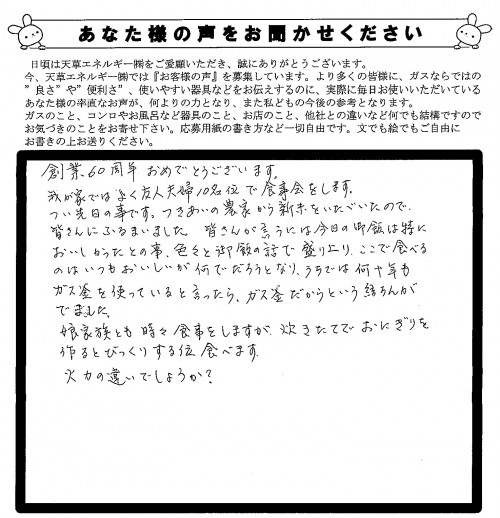 あなた様の声をお聞かせください
日頃は天草エネルギー㈱をご愛顧いただき、誠にありがとうございます。
今、天草エネルギー㈱では『お客様の声』を募集しています。より多くの皆様に、ガスならではの
”良さ”や”便利さ”、使いやすい器具などをお伝えするのに、実際に毎日お使いいただいている
あなた様の率直なお声が、何よりの力となり、また私どもの今後の参考となります。
ガスのこと、コンロやお風呂など器具のこと、お店のこと、他社との違いなど何でも結構ですので
お気づきのことをお寄せ下さい。応募用紙の書き方など一切自由です。文でも絵でもご自由に
お書きの上お送りください。
創業60周年おめでとうございます。
我が家ではよく友人夫婦10名位で食事会をします。
つい先日の事です。つきあいの農家から新米をいただいたので、
皆さんにふるまいました。皆さんが言うには今日の御飯は特に
おいしかったとの事、色々と御飯の話で盛り上り、ここで食べる
のはいつもおいしいが何でだろうとなり、うちでは何十年も
ガス釜を使っていると言ったら、ガス釜だからという結ろんが
でました。
娘家族とも時々食事をしますが、炊きたてでおにぎりを
作るとびっくりする位食べます。
火力の違いでしょうか？